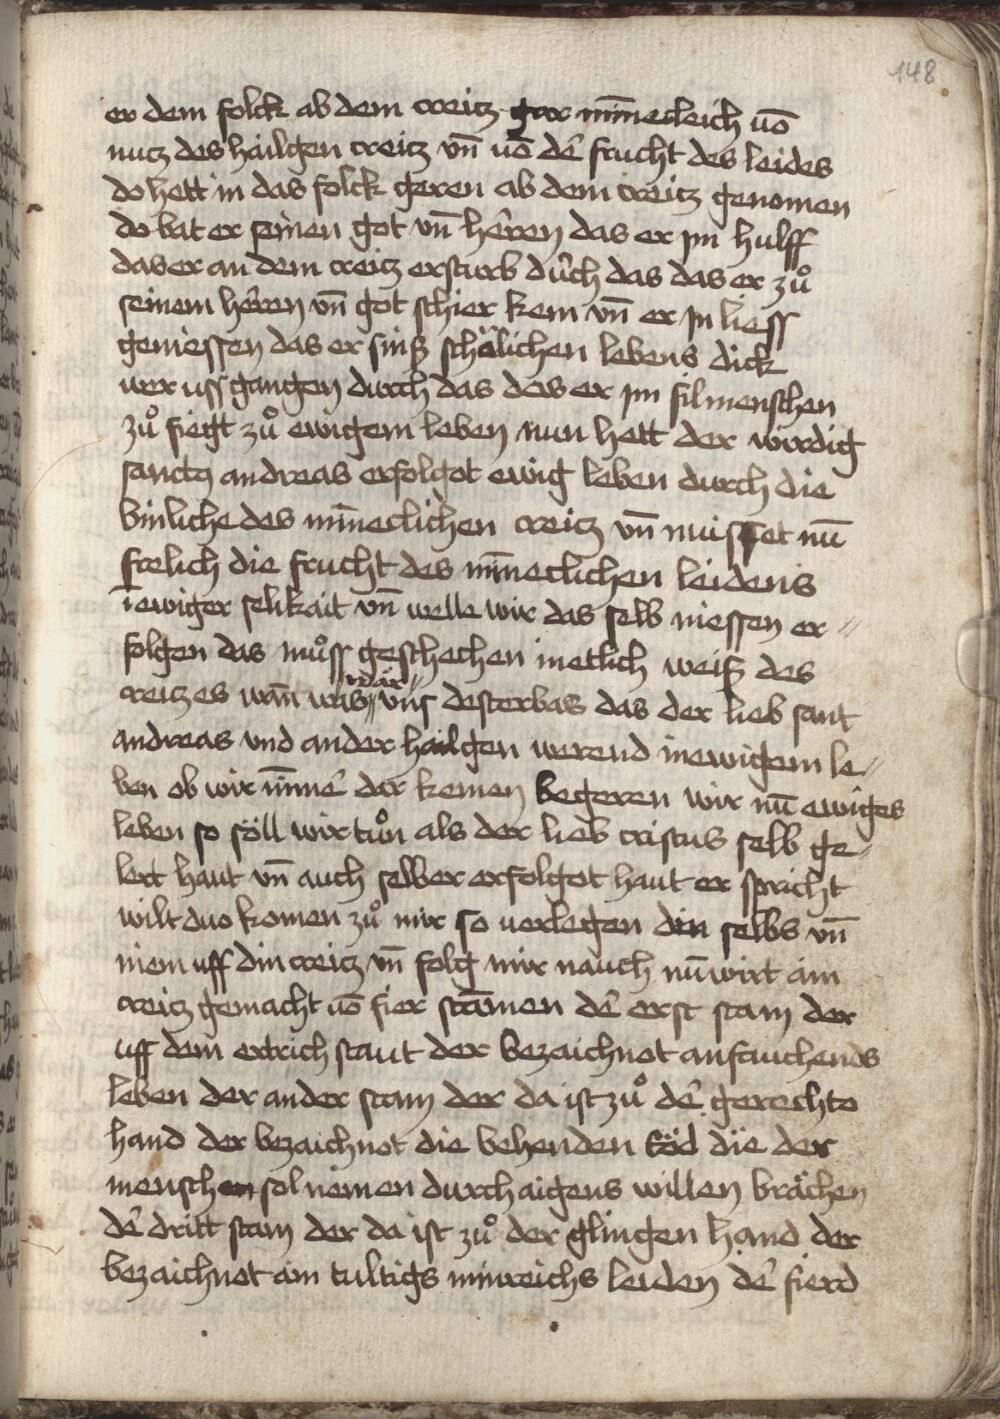 148
er dem folck ab dem creitz gar mīnecleich uō
nutz des hailgen creitz vn̄ uō dē frucht des leides
do hett in das folck geren ab dem creitz genomen
do bat er seinen got vn̄ hērren das er im hulff
das er an dem creitz ersturb dūrch das das er zů
seinem hērren vn̄ got schier kem vn̄ er in liess
geniessen das er sinß schölichen lebens dick
wer uss gangen durch das das er im fil menschen
zů fiegt zů ewigem leben nun hett der wirdig
sanctus andreas erfolgot ewig leben durch die
binliche des mīneclichen creitz vn̄ nuisset nū
frelich die frucht des mīneclichen leidens
ī ewiger selikait vn̄ welle wir das selb niessen er
folgen das můss geschechen in etlich weiß des
creitzes wān was wār uns dester bas das der lieb sant
andreas und ander hailgen werend in ewigem le
ben ob wir nīmē dar kemen begeren wir nū ewiges
leben so söll wir tůn als der lieb cristus selb ge
lert haut vn̄ auch selber erfolgot haut er spricht
wilt duo komen zů mir so uerlegen din selbs vn̄
niem uff din creitz vn̄ folg mir nauch nū wirt ain
creitz gemacht uō fier stāmen dē erst stam der
uff dem ertrich staut der bezaichnot anfauchends
leben der ander stam der da ist zů dē gerechte
hand der bezaichnot die behenden töd die der
menschen sol nemen durch aigens willen brächen
dē dritt stam der da ist zů der glingen hand der
bezaichnot ain tultigs minreichs leiden dē fierd